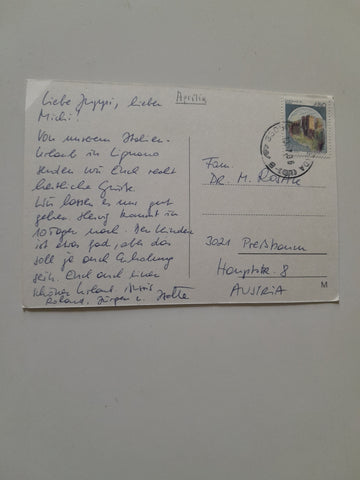 Liebe Juppi, lieber
Michi!
Von unserem Italien-
Urlaub in Lignano
senden wir Euch recht
herzliche Grüße.
Wir lassen es uns gut
gehen. kommt in
10 Tagen nach. Den Kindern
ist etwas fad, aber das
soll ja auch Erholung
sein. Euch auch einen
schönen Urlaub.
Roland, Jürgen u.
Aprilia
Fam.
DR. M.
3021 Preßbaum
Hauptstr. 8
AUSTRIA
M